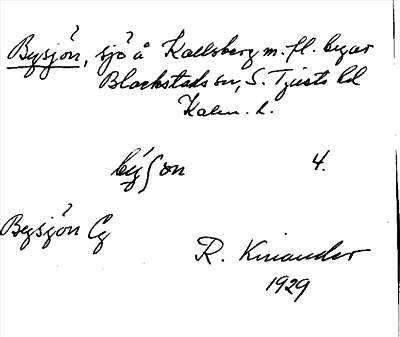 Bysjön, sjö å Kallsberg m. fl. byar
Blackstads sn, S. Tjusts hd
Kalm. l.
by´ʃon 4.
Bysjön Eg
R. Kinander
1929